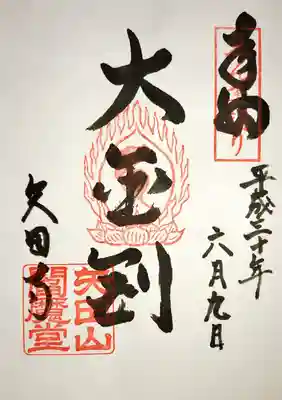 奉拝
平成二十年
六月九日
大金剛
矢田寺
矢田山
閻魔堂